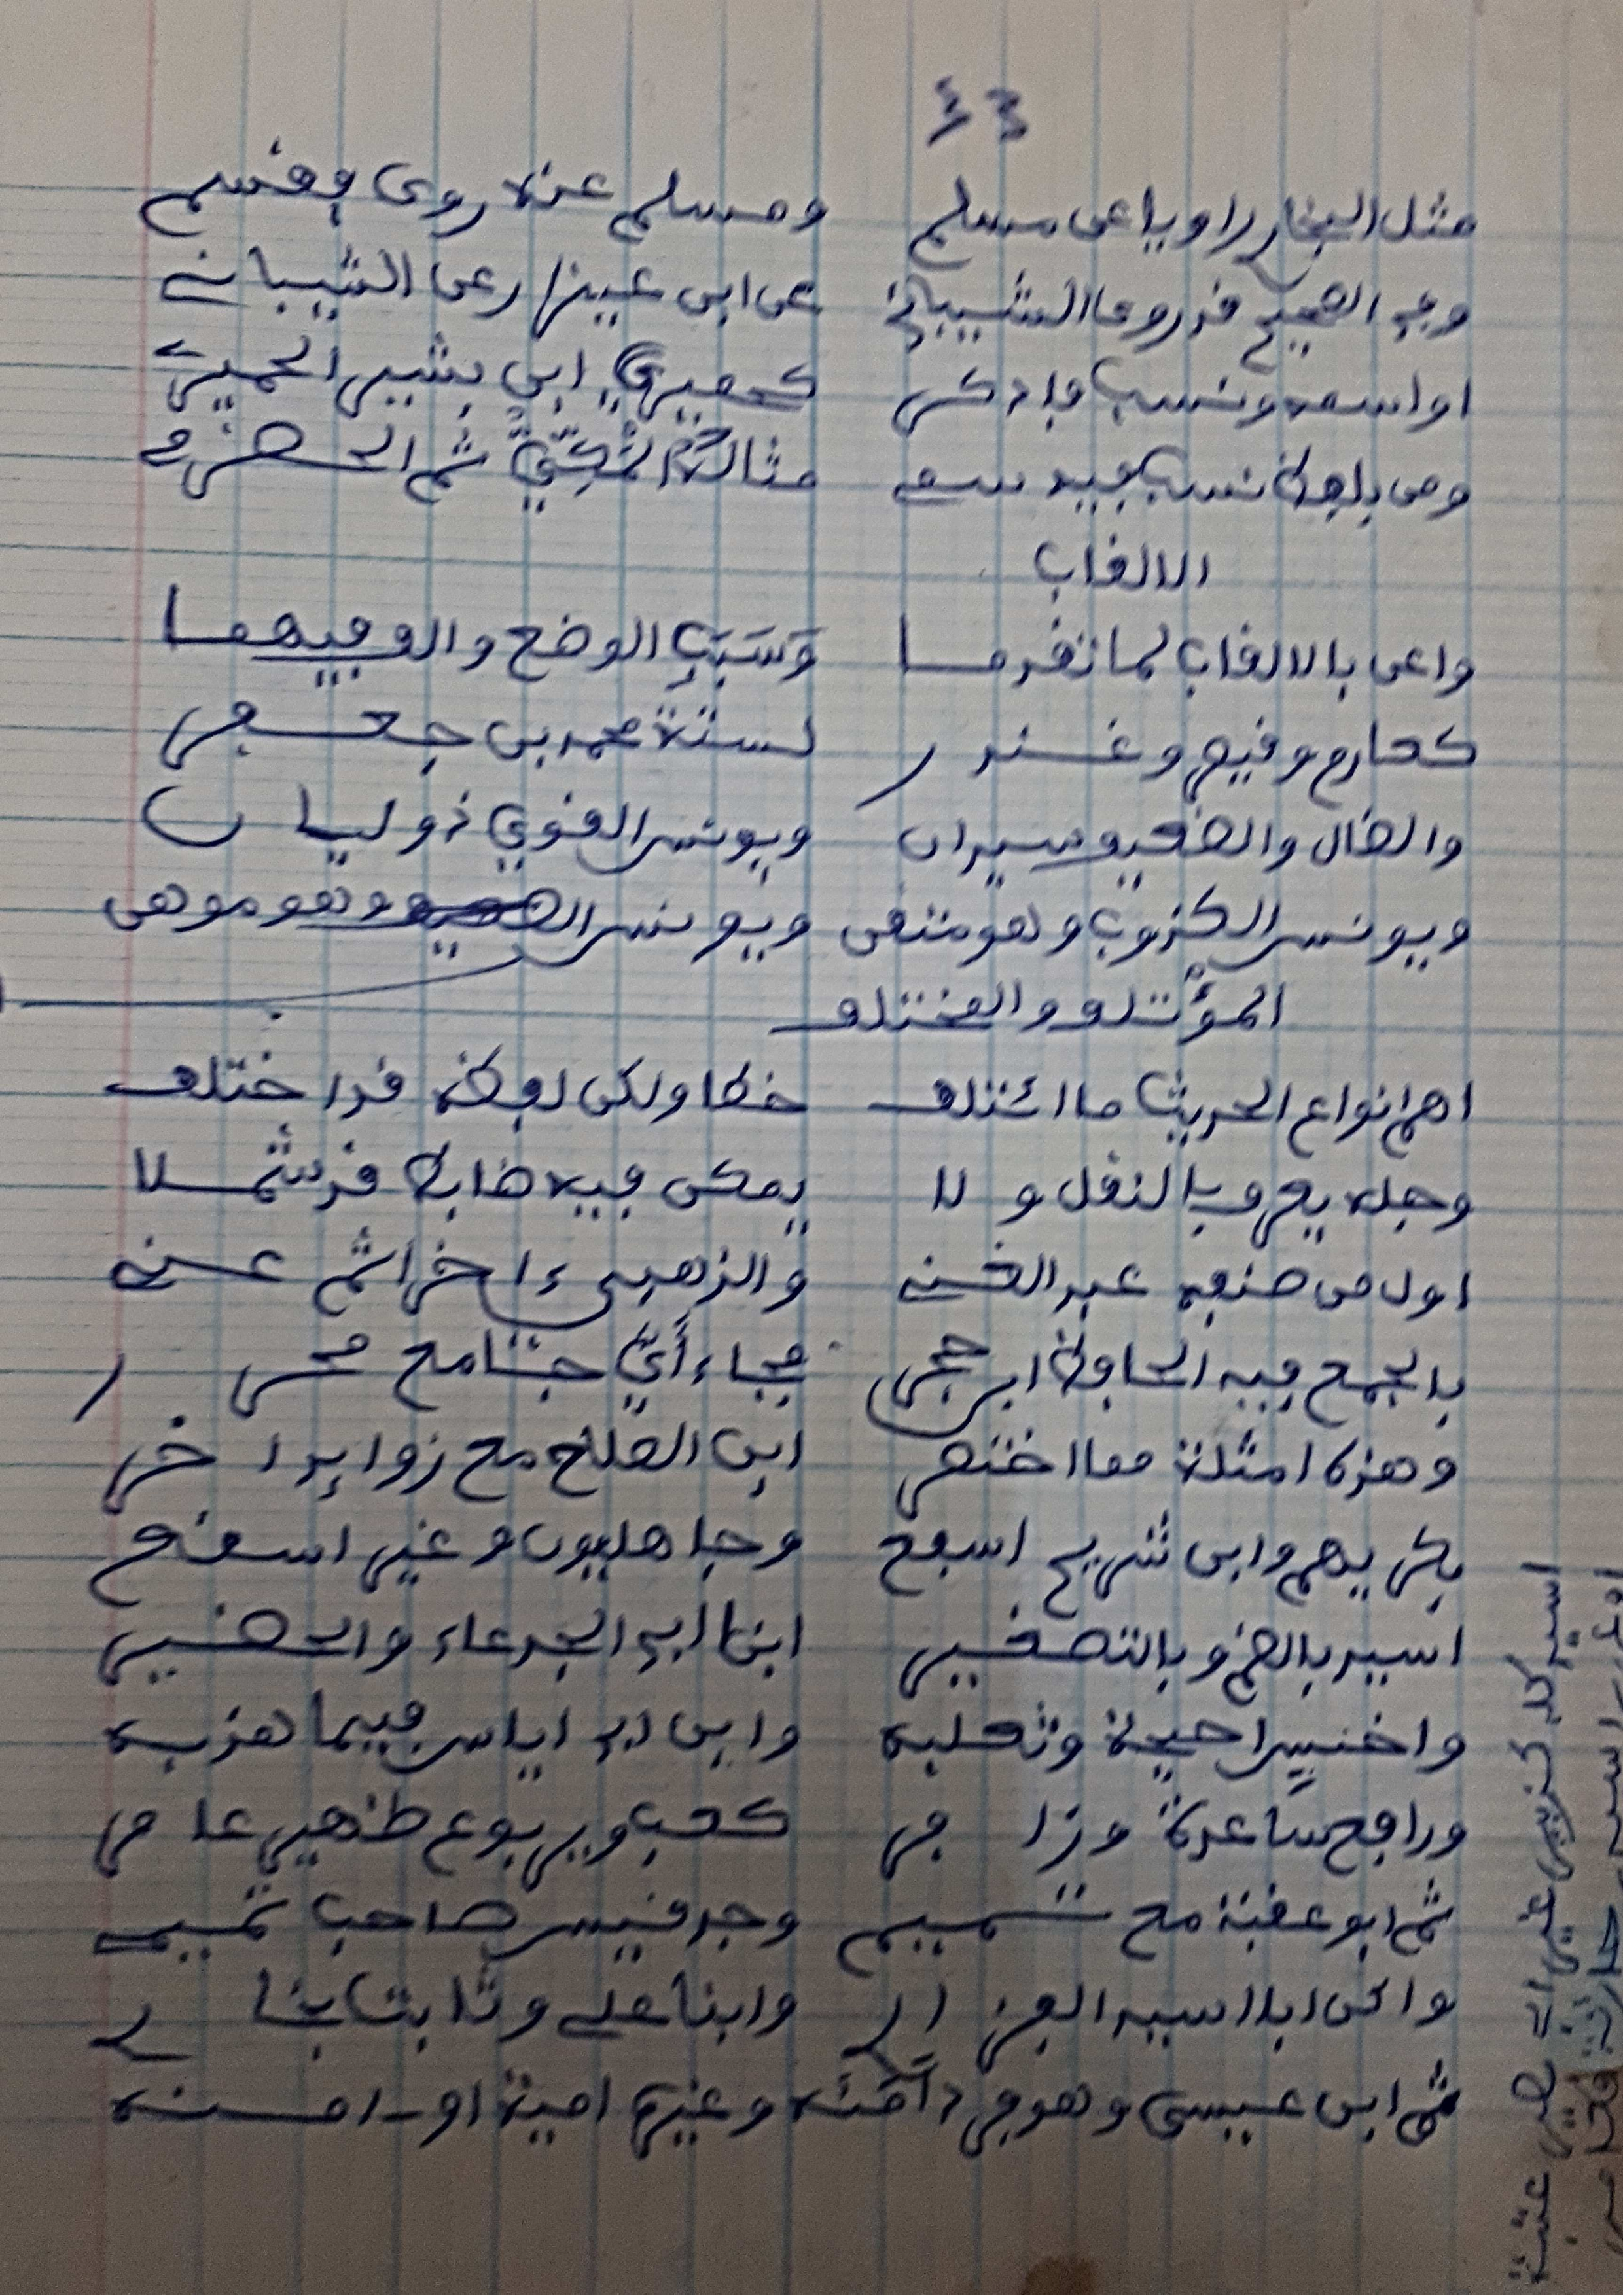 ٤٣
مثل البخار راويا عن مسلم ومسلم عنه روى فقسم
وفي الصحيح قد روى الشيباني عن ابي عيزار عن الشيباني
او اسمه ونسب فادكر كحميري ابي بشير الحميري
ومن بلفظ نسب فيه سمي مثاله المكي ثم الحضرمي
الالقاب
واعن بالالقاب لما تقدما وسبب الوضع والف فيهما
كعارم وقيصر وغندر لستة محمد بن جعفر
والضال والضعيف سيدان ويونس القوي ذو ليان
ويونس الكذوب وهو متقن ويونس الصدوق وهو موهن
المؤتلف والمختلف
اهم انواع الحديث ما ائتلف خطا ولكن لفظه قد اختلف
وجله يعرف بالنقل ولا يمكن فيه ضابط قد شملا
اول من صنفه عبد الغني والذهبي ءاخرا ثم عني
بالجمع فيه الحافظ ابن حجر فجاء أي جامع محرر
وهذه امثلة مما اختصر ابن الصلاح مع زوايد اخر
بكريهم وابن شريح اسفع وجاهليون وغير اسقع
اسيد بالضم وبالتصغير ابنا ابي الجدعاء والحضير
واخنس احيحة وثعلبه وابن ابي اياس فيما هذبه
ورافع ساعدة وزافر كعب ويربوع ظهير عامر
ثم ابو عقبة مع تميم وجد قيس صاحب تميمي
واكن ابا اسيد الفزاري وابنا علي وثابت بخاري
ثم ابن عيسى وهو فرد آمنه وغيره امية او امنه